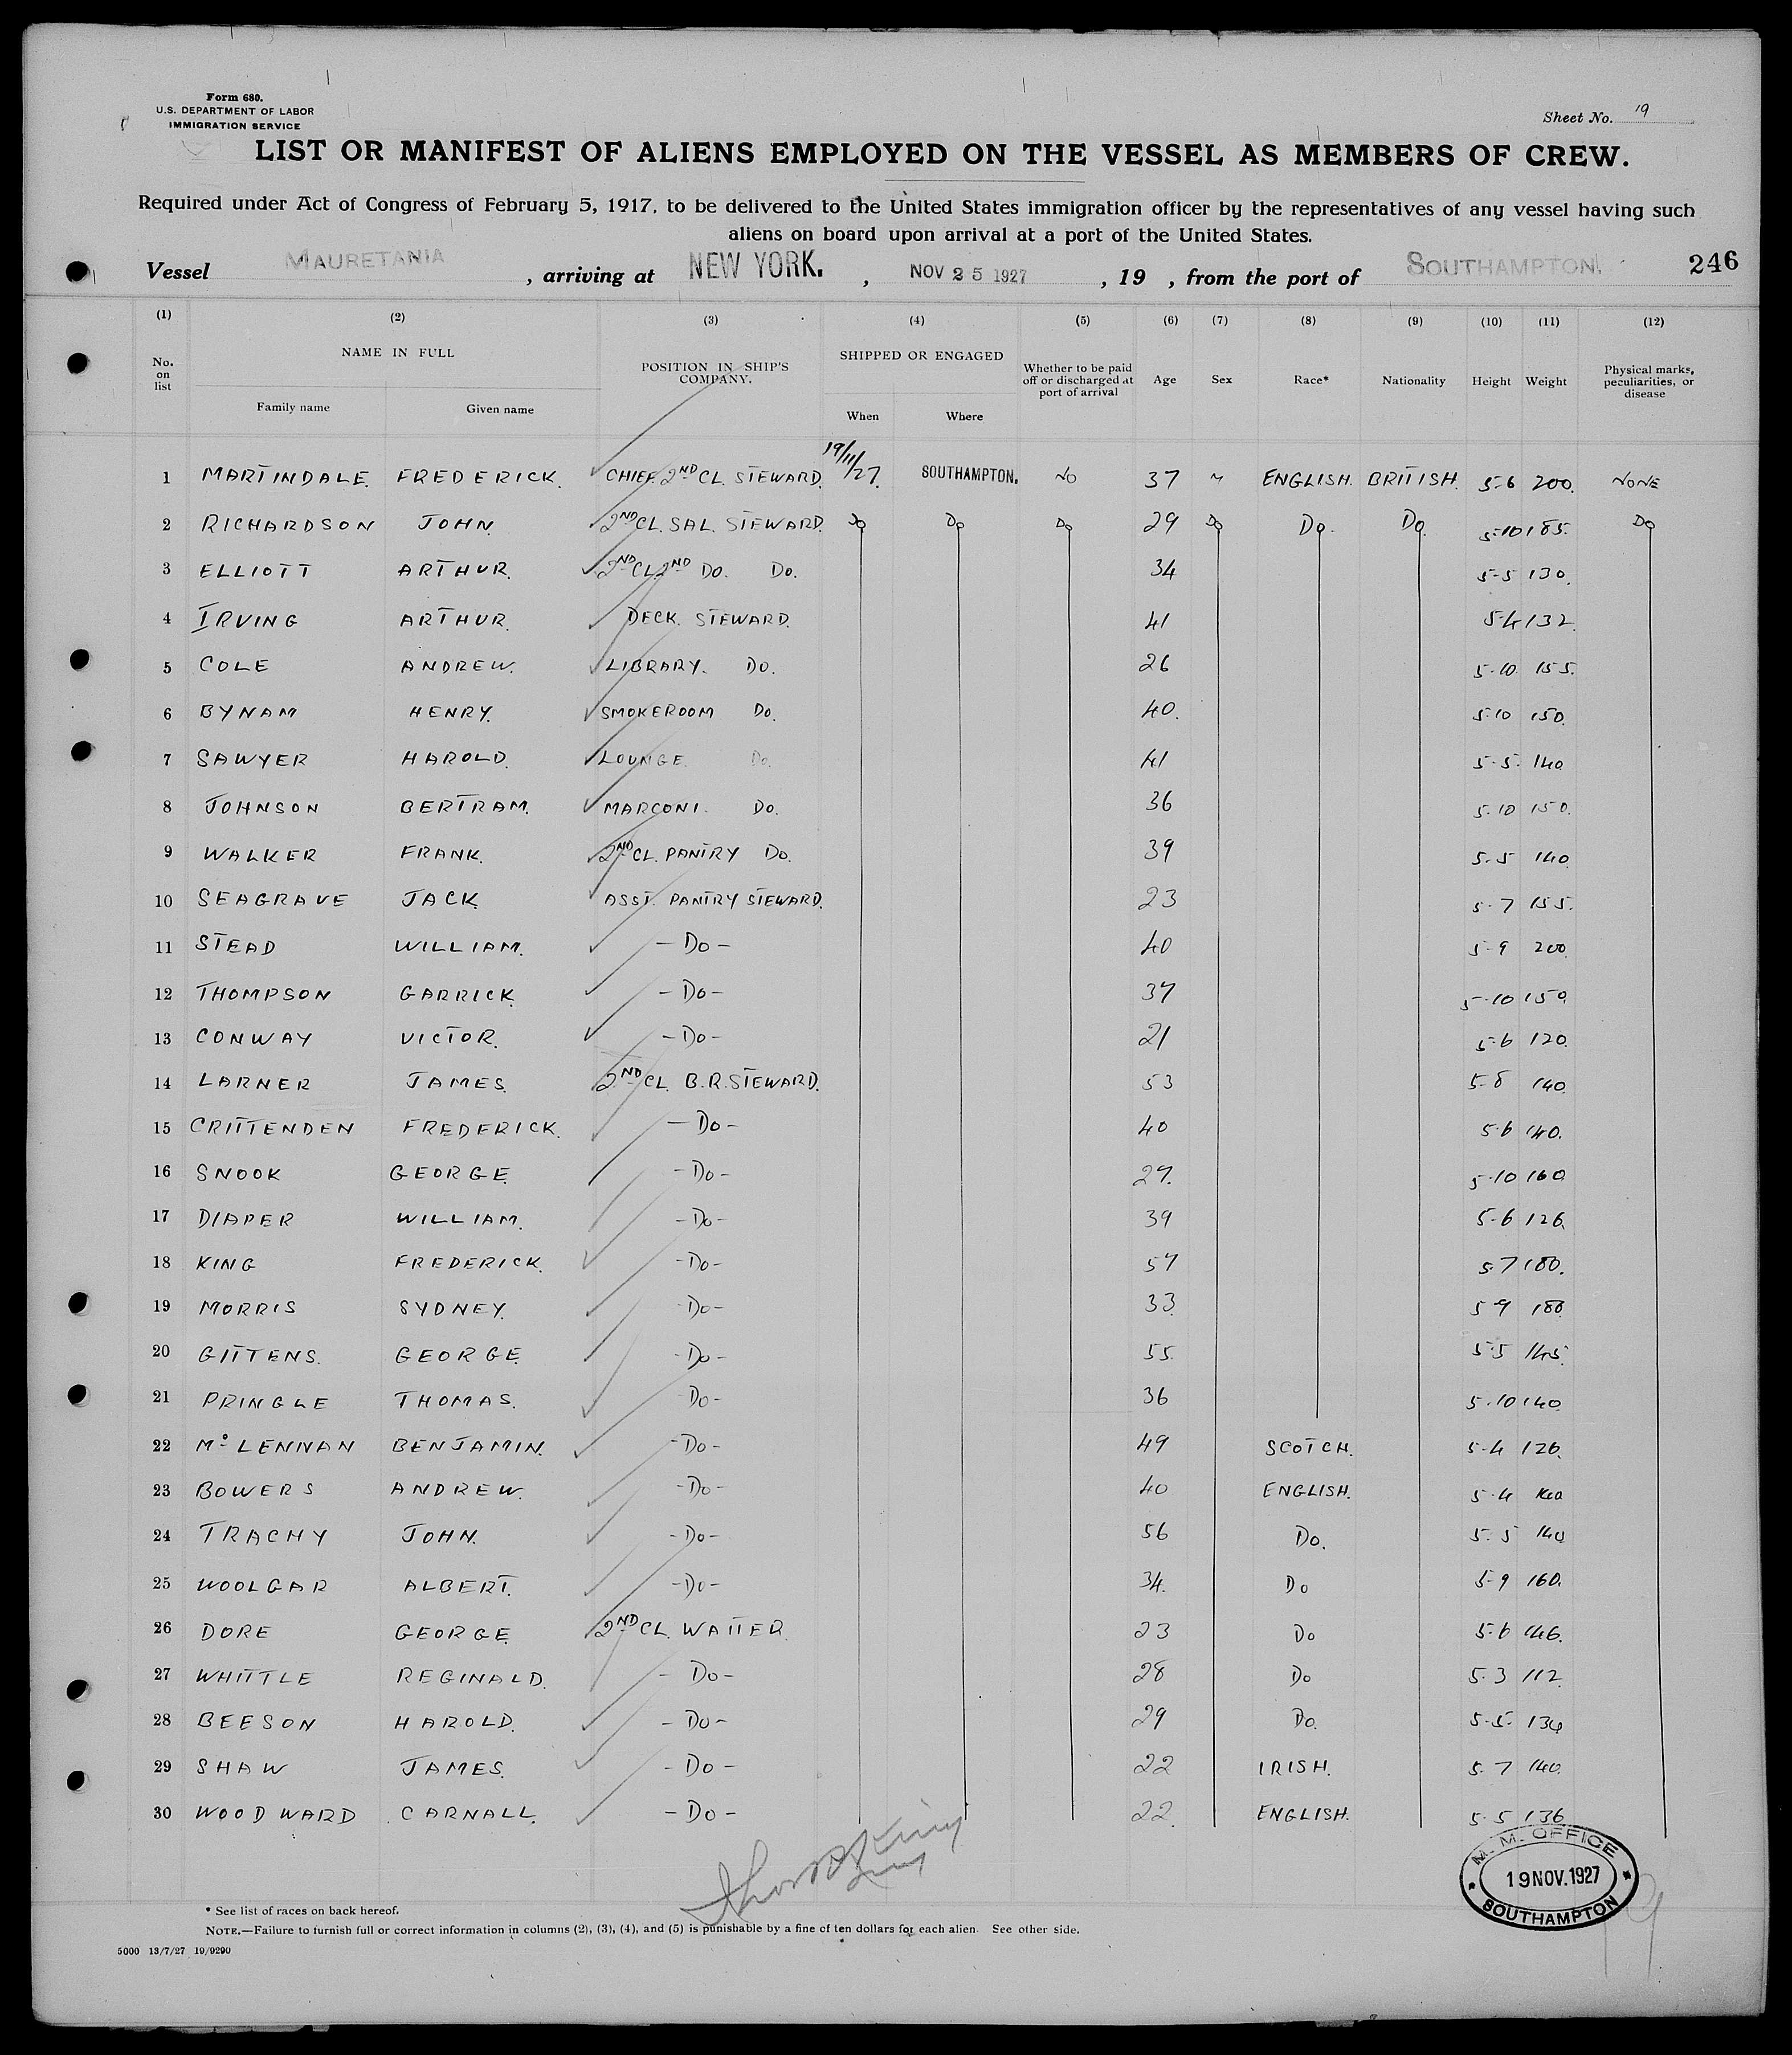 Form 680.
U.S. DEPARTMENT OF LABOR
IMMIGRATION SERVICE
Sheet No. 19
LIST OR MANIFEST OF ALIENS EMPLOYED ON THE VESSEL AS MEMBERS OF CREW.
Required under Act of Congress of February 5, 1917, to be delivered to the United States immigration officer by the representatives of any vessel having such
aliens on board upon arrival at a port of the United States.
Vessel MAURETANIA, arriving at NEW YORK., NOV 25 1927, 19 , from the port of SOUTHAMPTON. 246
(1) (2) (3) (4) (5) (6) (7) (8) (9) (10) (11) (12)
No. on list NAME IN FULL Family name Given name POSITION IN SHIP'S COMPANY. SHIPPED OR ENGAGED When Where Whether to be paid off or discharged at port of arrival Age Sex Race* Nationality Height Weight Physical marks, peculiarities, or disease
1 MARTINDALE. FREDERICK. CHIEF 2ND CL. STEWARD. 19/11/27. SOUTHAMPTON. NO 37 M ENGLISH. BRITISH. 5-6 200. NONE
2 RICHARDSON JOHN. 2ND CL. SAL. STEWARD. Do Do Do 29 Do Do. Do. 5-10 185. Do
3 ELLIOTT ARTHUR. 2ND CL 2ND DO. DO. 34 5-5 130.
4 IRVING ARTHUR. DECK. STEWARD. 41 5-4 132.
5 COLE ANDREW. LIBRARY. DO. 26 5-10. 155.
6 BYNAM HENRY. SMOKEROOM DO. 40. 5-10 150.
7 SAWYER HAROLD. LOUNGE. DO. 41 5-5. 140
8 JOHNSON BERTRAM. MARCONI. DO. 36 5-10 150.
9 WALKER FRANK. 2ND CL. PANTRY DO. 39 5-5 140
10 SEAGRAVE JACK. ASST. PANTRY STEWARD. 23 5-7 155.
11 STEAD WILLIAM. -Do- 40 5-9 200.
12 THOMPSON GARRICK. -Do- 37 5-10 150.
13 CONWAY VICTOR. -Do- 21 5-6 120.
14 LARNER JAMES. 2ND CL. B.R. STEWARD. 53 5-8 140.
15 CRITTENDEN FREDERICK. -Do- 40 5-6 140.
16 SNOOK GEORGE. -Do- 27. 5-10 160.
17 DIAPER WILLIAM. -Do- 39 5-6 126.
18 KING FREDERICK. -Do- 57 5-7 180.
19 MORRIS SYDNEY. -Do- 33. 5-9 188
20 GITTENS. GEORGE. -Do- 55. 5-5 145.
21 PRINGLE THOMAS. -Do- 36 5-10 140.
22 Mc LENNAN BENJAMIN. -Do- 49 SCOTCH. 5-4 126.
23 BOWERS ANDREW. -Do- 40 ENGLISH. 5-4 140
24 TRACHY JOHN. -Do- 56 Do. 5-5 140
25 WOOLGAR ALBERT. -Do- 34. Do 5-9 160.
26 DORE GEORGE. 2ND CL. WAITER. 23 Do 5-6 146.
27 WHITTLE REGINALD. -Do- 28 Do 5-3 112.
28 BEESON HAROLD. -Do- 29 Do. 5-5- 134
29 SHAW JAMES. -Do- 22 IRISH. 5-7 140.
30 WOODWARD CARNALL. -Do- 22. ENGLISH. 5-5 136
M. M. OFFICE
19 NOV. 1927
SOUTHAMPTON
* See list of races on back hereof.
NOTE.—Failure to furnish full or correct information in columns (2), (3), (4), and (5) is punishable by a fine of ten dollars for each alien. See other side.
5000 13/7/27 19/9290